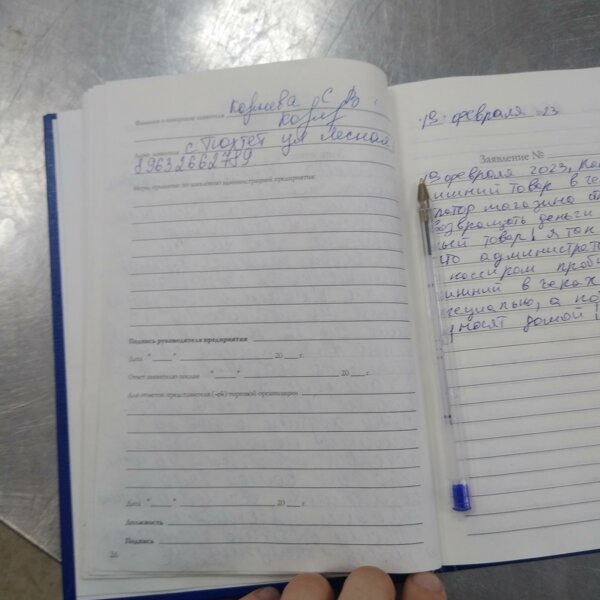 Фамилия и инициалы заявителя Корнева С В.
Адрес заявителя с. Тюхтет ул Лесная
89632662779
Меры, принятые по заявлению администрацией предприятия:
Подпись руководителя предприятия
Дата "____" ____ 20 ___ г.
Ответ заявителю послан "____" ____ 20 ___ г.
Для отметок представителя (-ей) торговой организации
Дата "____" ____ 20 ___ г.
Должность
Подпись
26
19. февраля 23
Заявление №
19 февраля 2023,
лишний товар в че
магазина
возвращать деньги
товар! Я так
что администрато
кассиром проби
лишний в чеках
специально, а по
носят домой!